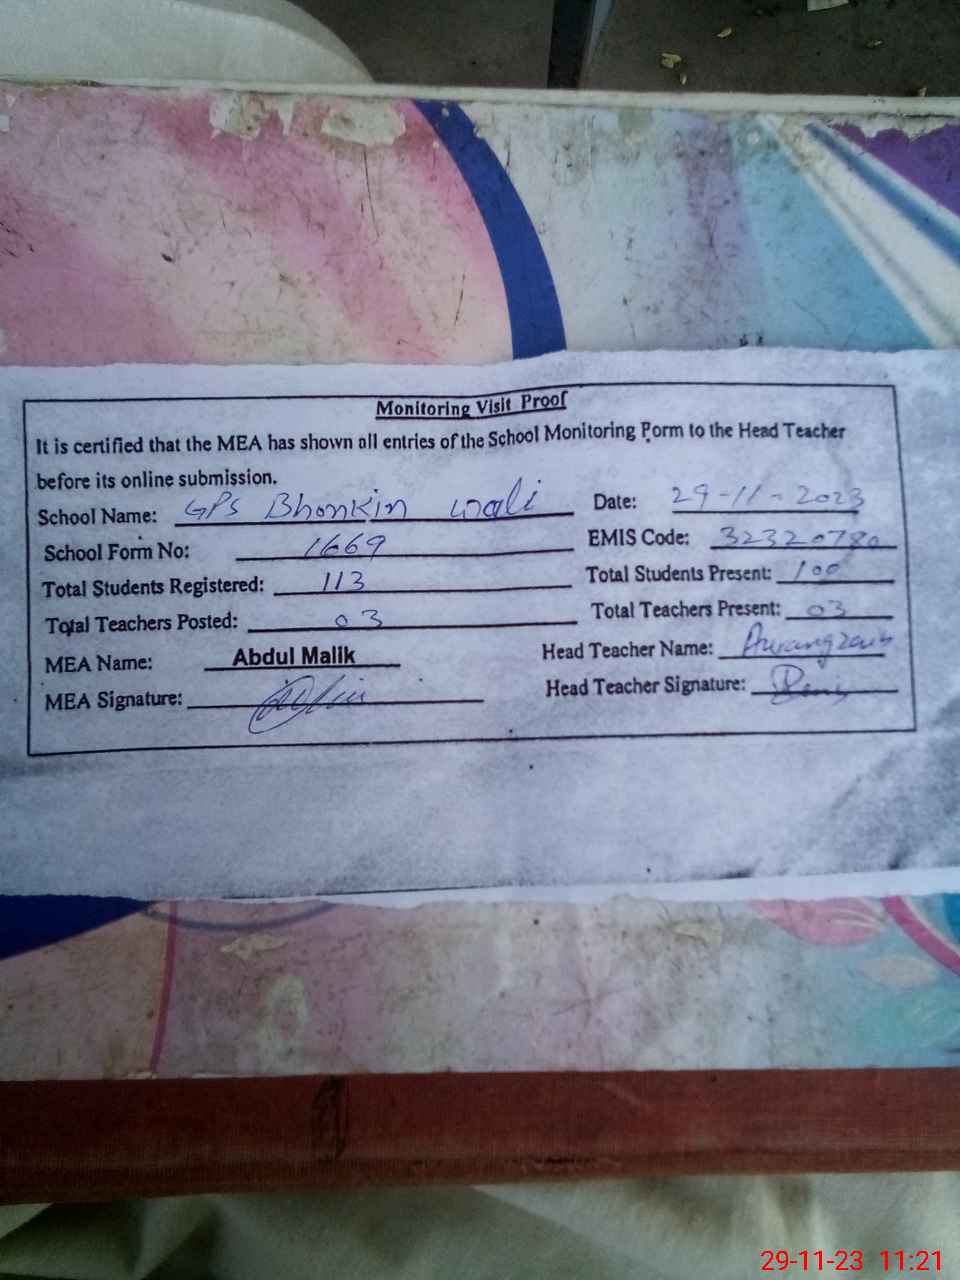 Monitoring Visit Proof
It is certified that the MEA has shown all entries of the School Monitoring Form to the Head Teacher
before its online submission.
School Name: GPS Bhonkin wali Date: 29-11-2023
School Form No: 1669 EMIS Code: 32320780
Total Students Registered: 113 Total Students Present: 100
Total Teachers Posted: 03 Total Teachers Present: 03
MEA Name: Abdul Malik Head Teacher Name: Aurangzaib
MEA Signature: Head Teacher Signature:
29-11-23 11:21